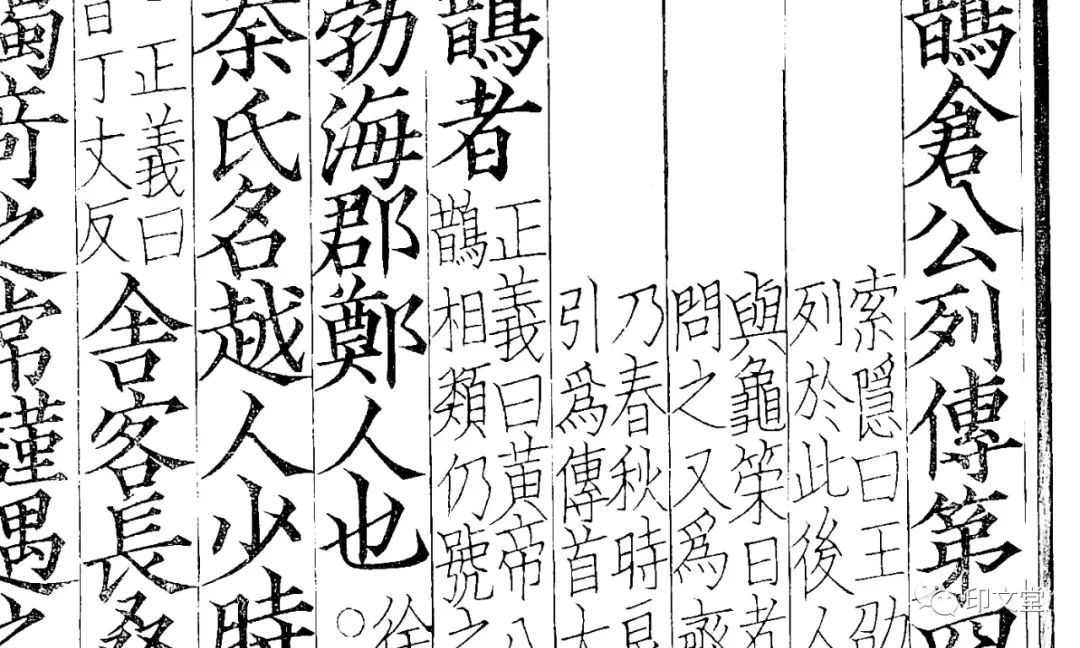 鵲倉公列傳第四
索隱曰王劭
列於此後人
與龜筞日者
問之又爲齊
乃春秋時良
引爲傳首太
鵲者
正義曰黃帝八
鵲相類仍號之
勃海郡鄭人也
徐
○
秦氏名越人少時
正義曰
丁丈反
舍客長桑
獨奇之常謹遇之
印文堂